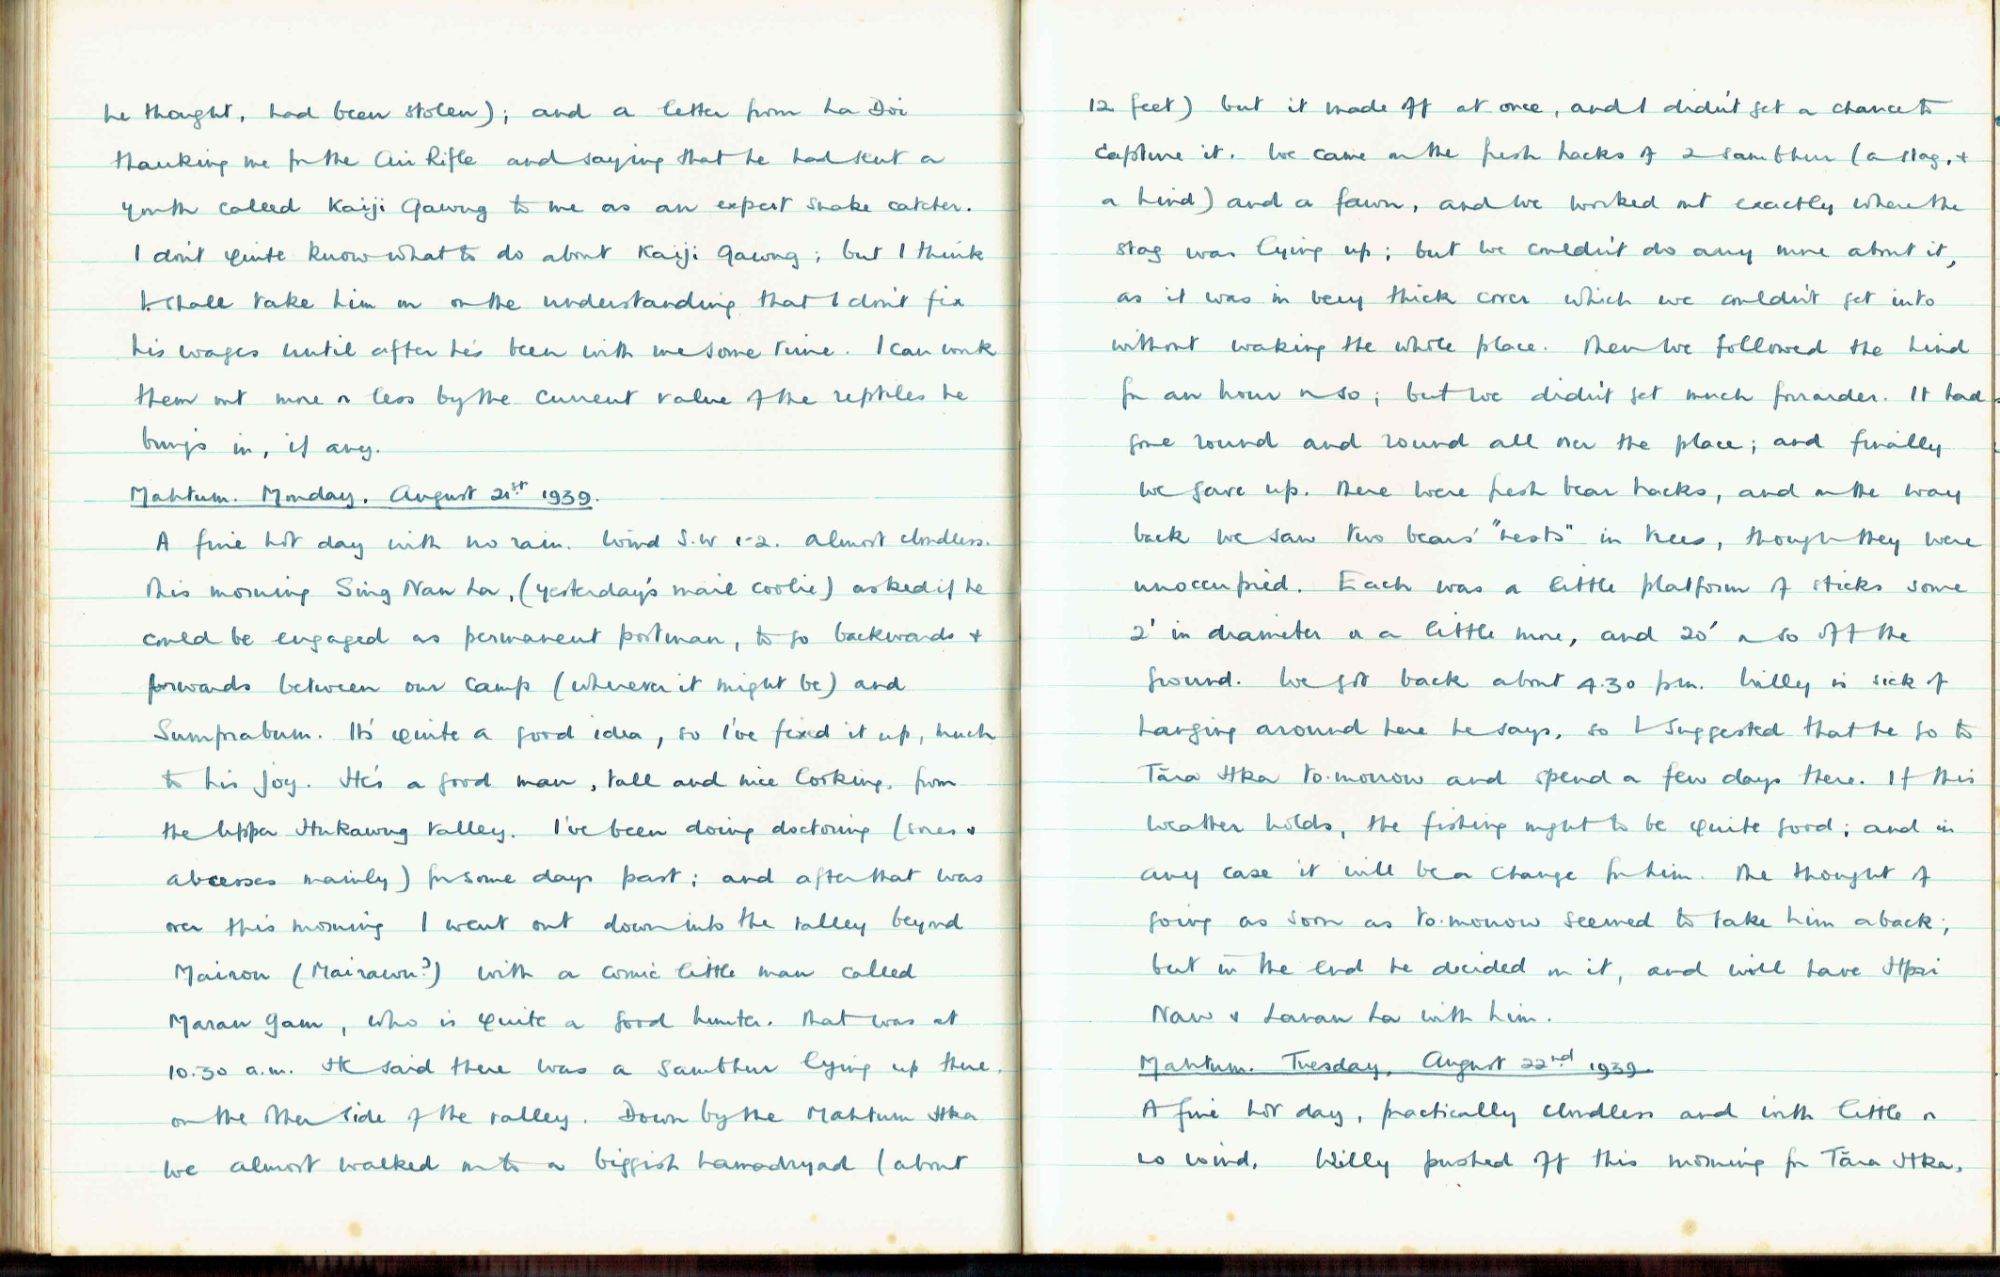 he thought, had been stolen); and a letter from La Doi
thanking me for the Air Rifle and saying that he had sent a
youth called Kaiji Gawng to me as an expert snake catcher.
I don't quite know what to do about Kaiji Gawng; but I think
I shall take him on on the understanding that I don't fix
his wages until after he's been with me some time. I can work
them out more or less by the current value of the reptiles he
brings in, if any.
Mahtum. Monday. August 21st 1939.
A fine hot day with no rain. Wind S.W 1-2. Almost cloudless.
This morning Sing Naw La, (yesterday's mail coolie) asked if he
could be engaged as permanent postman, to go backwards +
forwards between our camp (wherever it might be) and
Sumprabum. It's quite a good idea, so I've fixed it up, much
to his joy. He's a good man, tall and nice looking, from
the Upper Hukawng Valley. I've been doing doctoring (sores +
abcesses mainly) for some days past; and after that was
over this morning I went out down into the valley beyond
Mairon (Mairawn?) with a comic little man called
Maran Gam, who is quite a good hunter. That was at
10.30 a.m. He said there was a Sambhur lying up there,
on the other side of the valley. Down by the Mahtum Hka
we almost walked on to a biggish hamadryad (about
12 feet) but it made off at once, and I didn't get a chance to
capture it. We came on the fresh tracks of 2 sambhur (a stag, +
a hind) and a fawn, and we worked out exactly where the
stag was lying up; but we couldn't do any more about it,
as it was in very thick cover which we couldn't get into
without waking the whole place. Then we followed the hind
for an hour or so; but we didn't get much forrarder. It had
gone round and round all over the place; and finally
we gave up. There were fresh bear tracks, and on the way
back we saw two bears' "nests" in trees, though they were
unoccupied. Each was a little platform of sticks some
2' in diameter or a little more, and 20' or so off the
ground. We got back about 4.30 p.m. Willy is sick of
hanging around here he says, so I suggested that he go to
Tāra Hka to-morrow and spend a few days there. If this
weather holds, the fishing ought to be quite good; and in
any case it will be a change for him. The thought of
going as soon as to-morrow seemed to take him aback;
but in the end he decided on it, and will have Hpri
Naw + Lavan La with him.
Mahtum. Tuesday, August 22nd 1939.
A fine hot day, practically cloudless and with little or
no wind. Willy pushed off this morning for Tāra Hka.